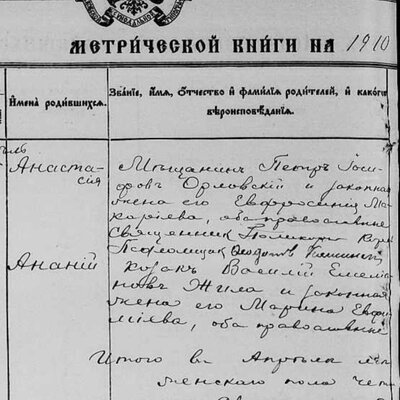 МЕТРИЧЕСКОЙ КНИГИ НА 1910
Имена родившихся.
Званіе, имя, отчество и фамилія родителей, и какого
вѣроисповѣданія.
Анаста-
сія
Мѣщанинъ Петръ Іоси-
фовъ Орловскій и законная
жена его Евфросинія Ма-
каріева, оба православные
Священник
Псаломщик
Ананій
козакъ Василій Емелья-
новъ Жила и законная
жена его Марина Евфи-
міева, оба православные
Итого въ Апрѣлѣ
женскаго пола